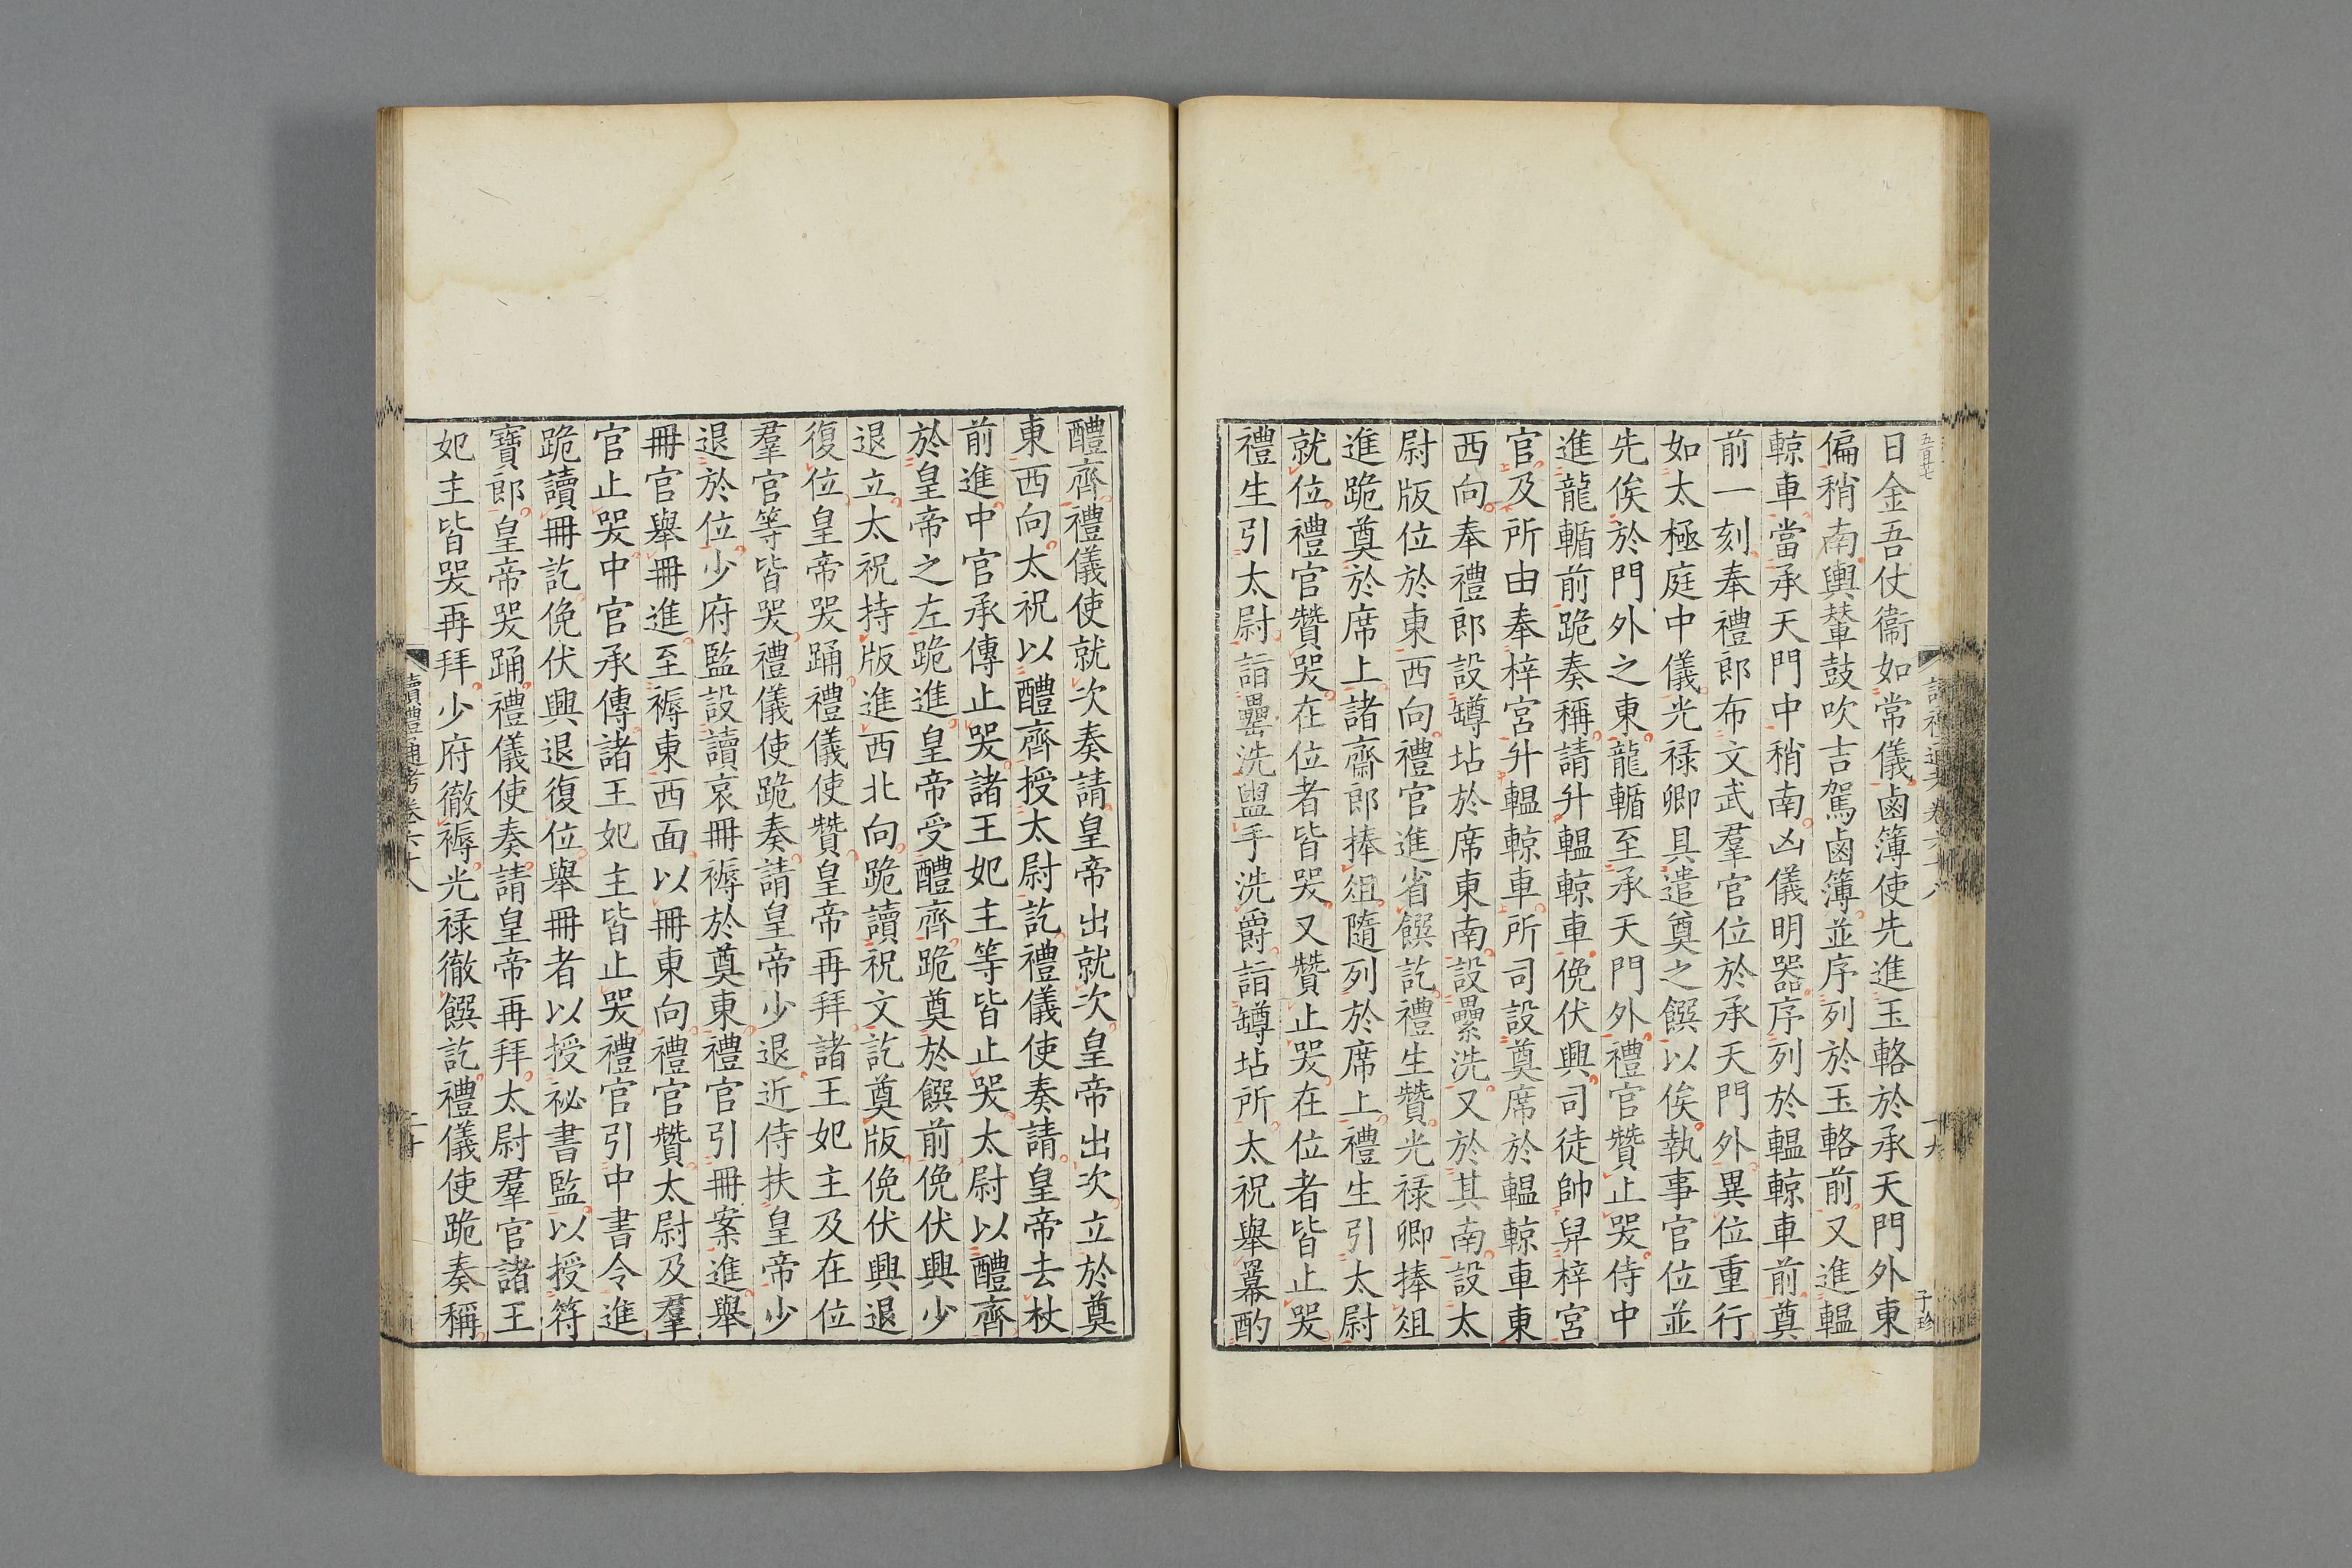 日金吾仗衞如常儀鹵簿使先進玉輅於承天門外東
偏稍南輿輦鼓吹吉駕鹵簿並序列於玉輅前又進轀
輬車當承天門中稍南凶儀明器序列於轀輬車前奠
前一刻奉禮郎布文武羣官位於承天門外異位重行
如太極庭中儀光祿卿具遣奠之饌以俟執事官位並
先俟於門外之東龍輴至承天門外禮官贊止哭侍中
進龍輴前跪奏稱請升轀輬車俛伏興司徒帥舁梓宮
官及所由奉梓宮升轀輬車所司設奠席於轀輬車東
西向奉禮郎設罇坫於席東南設罍洗又於其南設太
尉版位於東西向禮官進省饌訖禮生贊光祿卿捧俎
進跪奠於席上諸齋郎捧俎隨列於席上禮生引太尉
就位禮官贊哭在位者皆哭又贊止哭在位者皆止哭
禮生引太尉詣罍洗盥手洗爵詣罇坫所太祝舉冪酌
醴齊禮儀使就次奏請皇帝出就次皇帝出次立於奠
東西向太祝以醴齊授太尉訖禮儀使奏請皇帝去杖
前進中官承傳止哭諸王妃主等皆止哭太尉以醴齊
於皇帝之左跪進皇帝受醴齊跪奠於饌前俛伏興少
退立太祝持版進西北向跪讀祝文訖奠版俛伏興退
復位皇帝哭踊禮儀使贊皇帝再拜諸王妃主及在位
羣官等皆哭禮儀使跪奏請皇帝少退近侍扶皇帝少
退於位少府監設讀哀冊褥於奠東禮官引冊案進舉
冊官舉冊進至褥東西面以冊東向禮官贊太尉及羣
官止哭中官承傳諸王妃主皆止哭禮官引中書令進
跪讀冊訖俛伏興退復位舉冊者以授祕書監以授符
寶郎皇帝哭踊禮儀使奏請皇帝再拜太尉羣官諸王
妃主皆哭再拜少府徹褥光祿徹饌訖禮儀使跪奏稱
讀禮通考卷六十八
二十